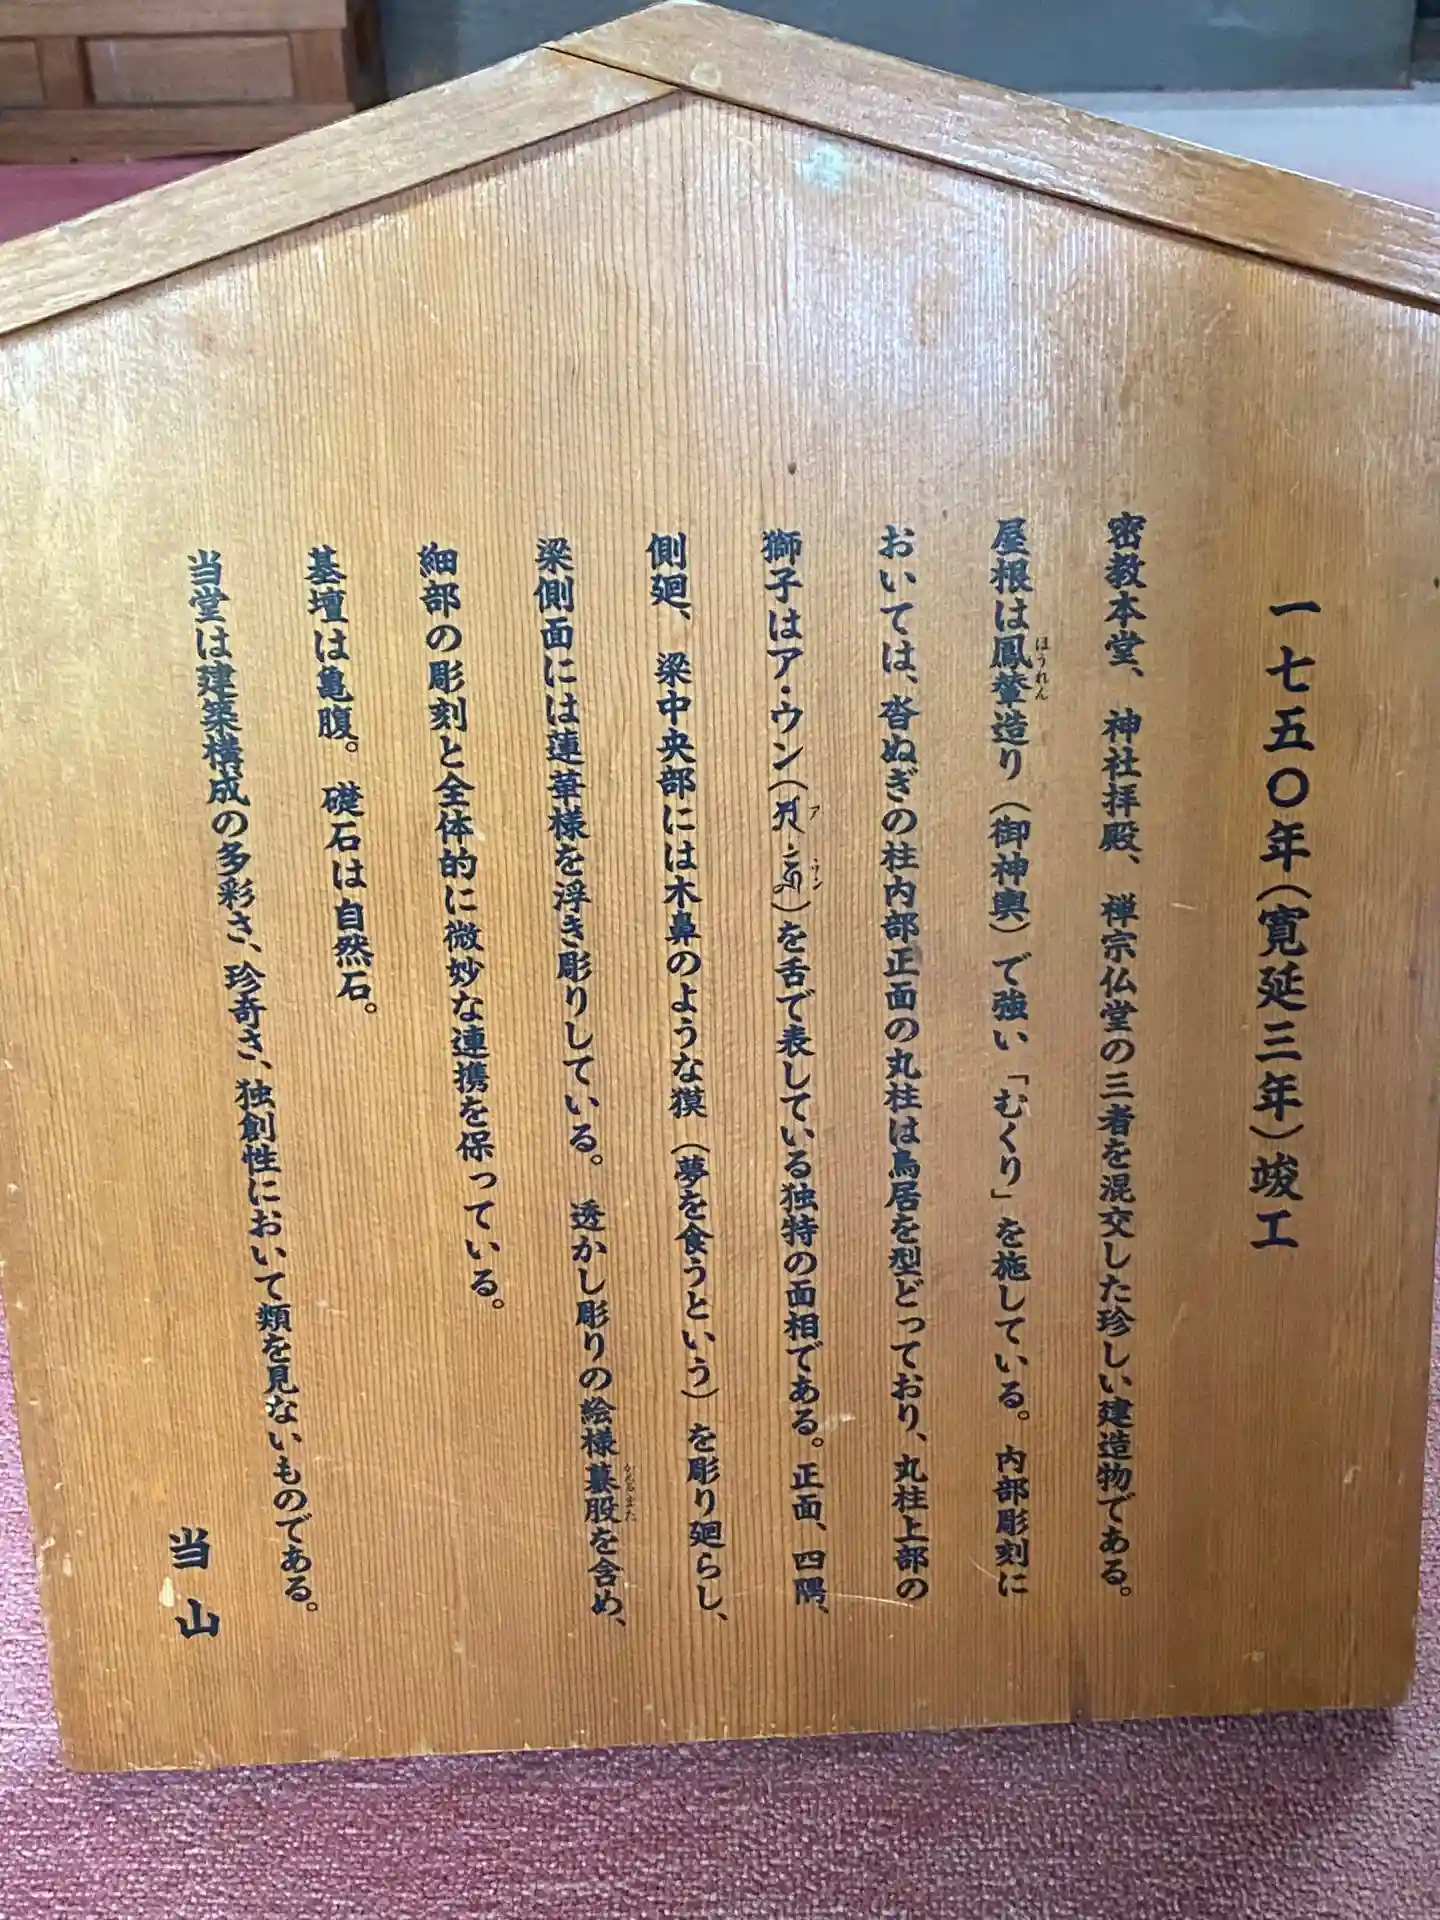 一七五〇年(寛延三年)竣工
密教本堂、神社拝殿、禅宗仏堂の三者を混交した珍しい建造物である。
屋根は鳳輦造り(御神輿)で強い「むくり」を施している。内部彫刻に
ほうれん
おいては、沓ぬぎの柱内部正面の丸柱は鳥居を型どっており、丸柱上部の
獅子はア・ウン()を舌で表している独特の面相である。正面、四隅、
ア ウン
側廻、梁中央部には木鼻のような獏(夢を食うという)を彫り廻らし、
梁側面には蓮華様を浮き彫りしている。透かし彫りの絵様蟇股を含め、
かえるまた
細部の彫刻と全体的に微妙な連携を保っている。
基壇は亀腹。礎石は自然石。
当堂は建築構成の多彩さ、珍奇さ、独創性において類を見ないものである。
当山